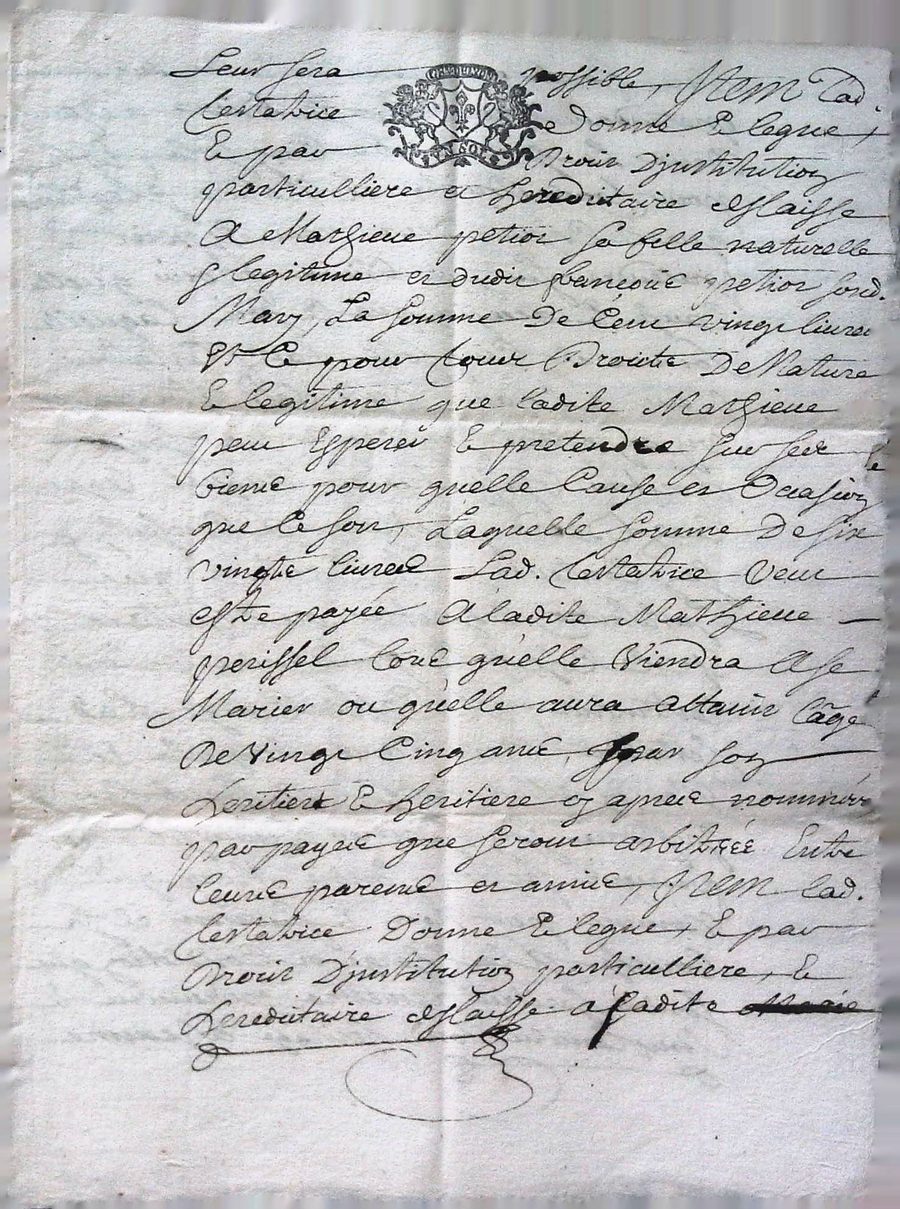 Leur sera possible, Item lad.
testatrice a donne & legue,
& par droit d'institution
particulliere et hereditaire dellaisse
a Mathieue petiot sa fille naturelle
& legitime et dudit francois petiot sond.
Mary, La somme De Cent vingt livres
Et ce pour tous Droitz De Nature
& legitime que ladite Mathieue
peut Esperer & pretendre sur ses
biens pour quelle Cause et Occasion
que ce soit, Laquelle somme De six
vingts livres Lad. testatrice veut
estre payée A ladite Mathieue —
perissel lors qu'elle Viendra A se
Marier ou qu'elle aura attaint l'âge
De Vingt Cinq ans, par son
heritier & heritiere cy apres nommés
par payes que seront arbitrées Entre
leurs parens et amis, Item lad.
testatrice Donne & legue, & par
Droit D'institution particulliere, &
hereditaire dellaisse à ladite